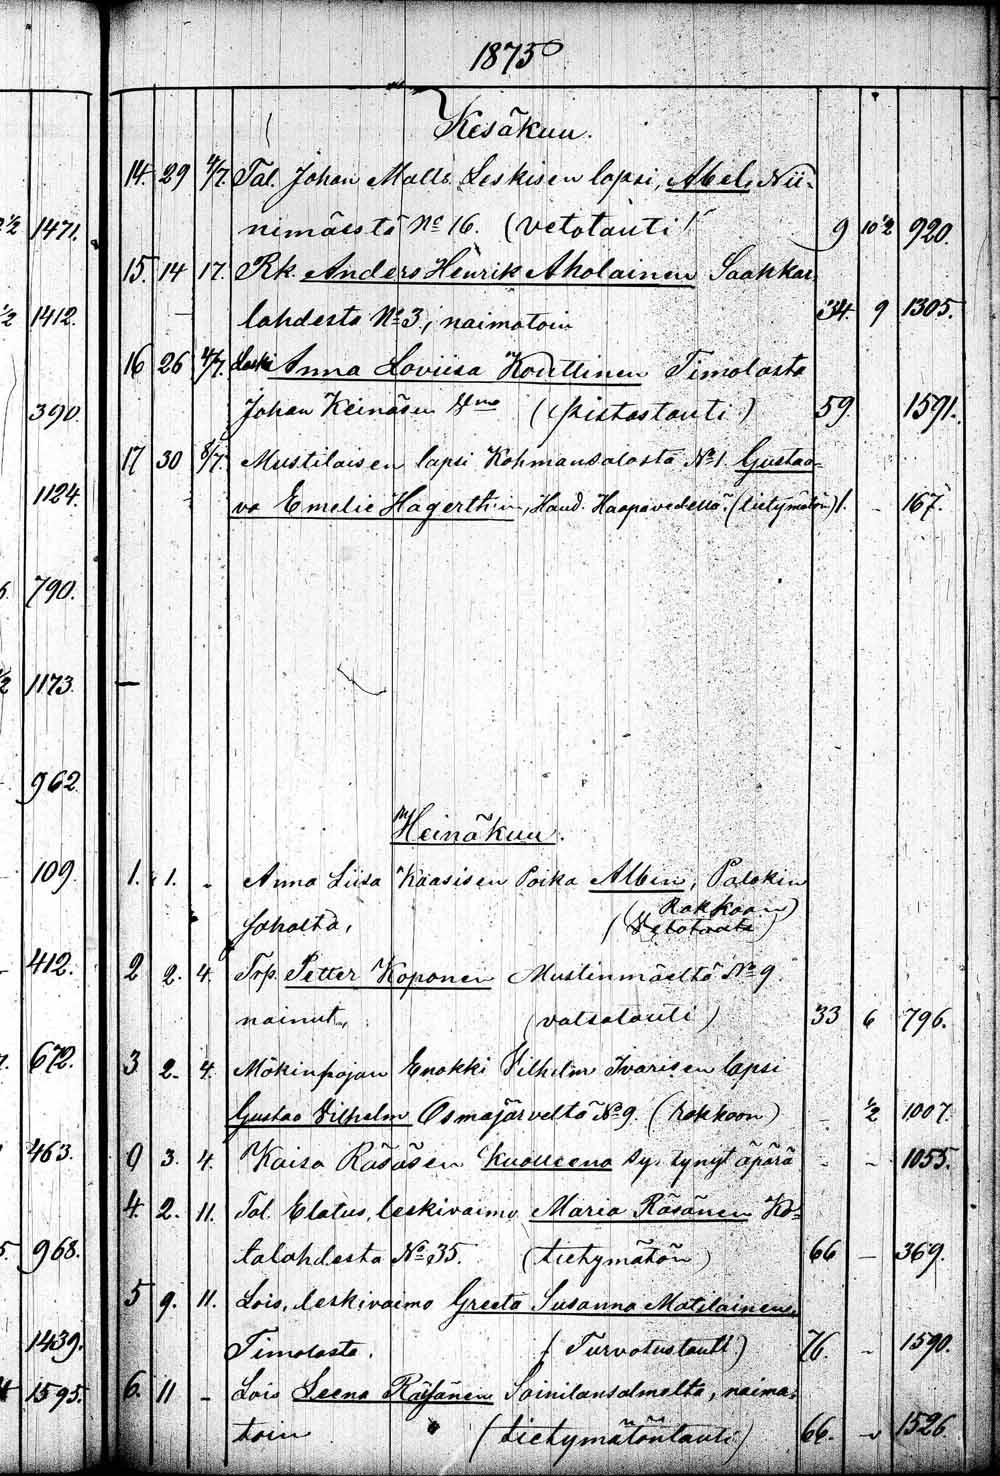 1875
Kesäkuu.
1471.
14. 29 4/7. Tal. Johan Matts. Leskisen lapsi, Abel, Nii-
nimäestä No 16. (vetotauti) 9 10 1/2 920.
1412.
15. 14 17. Rk. Anders Henrik Aholainen Saahkar-
lahdesta No 3, naimatoin 34 9 1305.
390.
16 26 4/7. Leski Anna Loviisa Konttinen Timolasta
Johan Keinäsen (pistostauti) 59 1591.
1124.
17 30 8/7. Mustilaisen lapsi Kohmansalosta No 1. Gustaa-
va Emelie Hagerthin, Haud. Haapavedellä. (tietymätön) 1. - 167.
790.
1173.
962.
Heinäkuu.
109.
1. 1. - Anna Liisa Kaasisen Poika Albin, Palokin
(Rokkoon)
Joholta, (Vetotauti)
412.
2 2. 4. Trp. Petter Koponen Mustinmäeltä No 9.
nainut, (vatsatauti) 33 6 796.
672.
3 2. 4. Mökinpojan Enokki Vilhelm Ivarisen lapsi
Gustao Vilhelm Osmajärveltä No 9. (rokkoon) - 1/2 1007.
463.
0 3. 4. Kaisa Räsäsen Kuolleena sy. tynyt äpärä - - 1055.
4. 2. 11. Tal. Elatus, leskivaimo Maria Räsänen Ko-
968.
talahdesta No 35. (tietymätön) 66 - 369.
5 9. 11. Lois, leskivaimo Greeta Susanna Matilainen,
1439.
Timolasta. (Turvotustauti) 76. - 1590.
1595.
6. 11 - Lois Leena Räisänen Soinilansalmelta, naima-
toin (tietymätöntauti) 66. - 1526